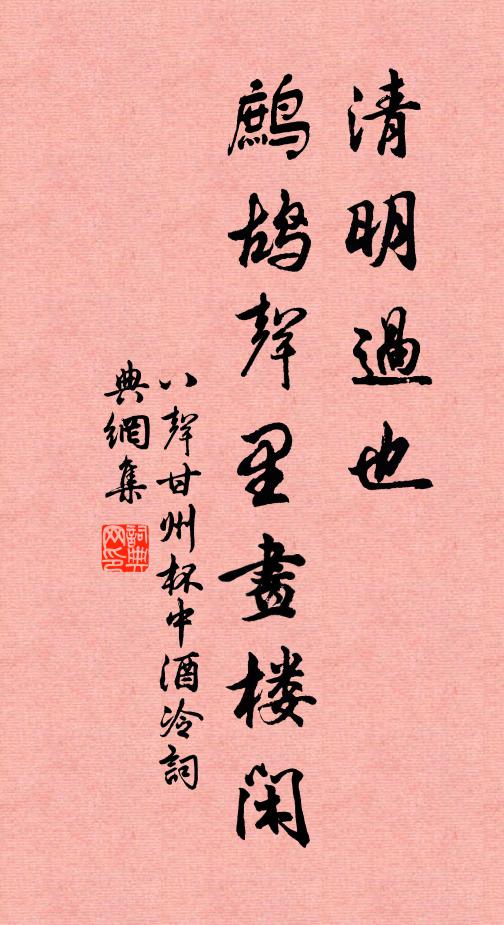 清明過也
鷓鴣聲里畫楼闲
八聲甘州杯中酒冷詞
典網集
詞典网印